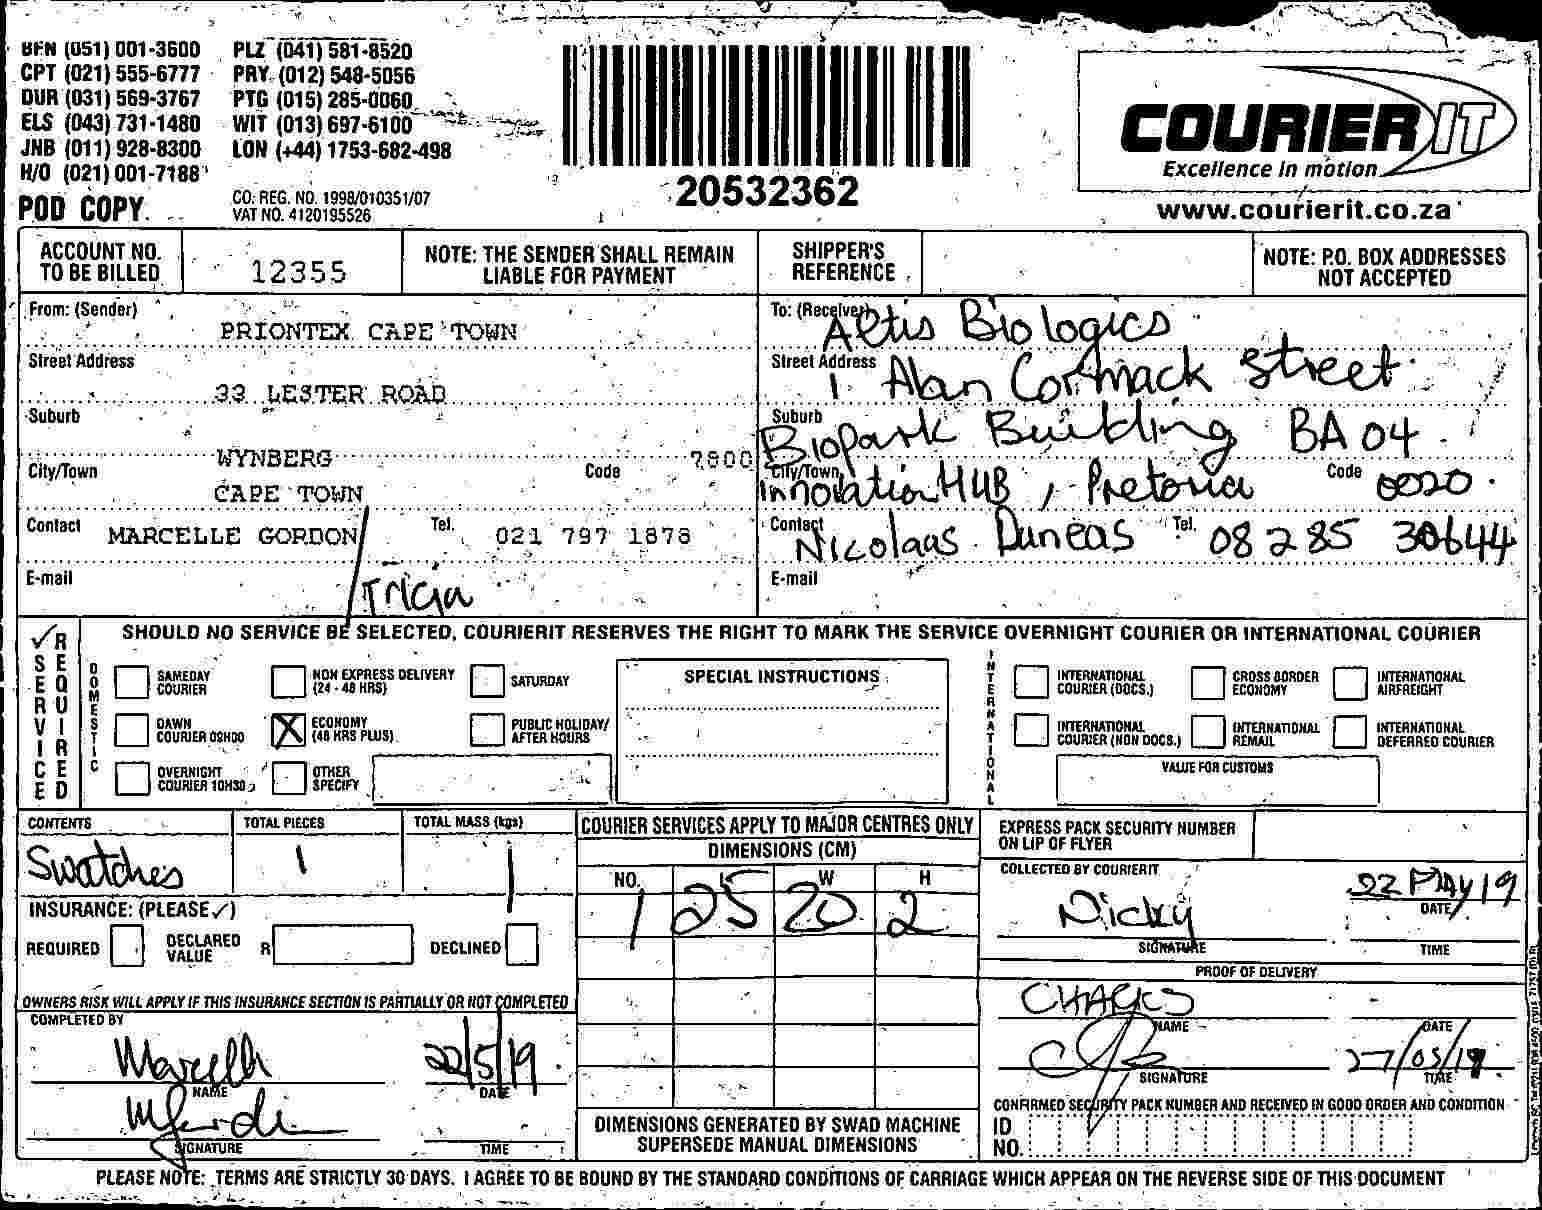 BFN (051) 001-3600 PLZ (041) 581-8520
CPT (021) 555-6777 PRY. (012) 548-5056
DUR (031) 569-3767 PTG (015) 285-0060
ELS (043) 731-1480 WIT (013) 697-6100
JNB (011) 928-8300 LON (+44) 1753-682-498
H/O (021) 001-7188
POD COPY
CO. REG. NO. 1998/010351/07
VAT NO. 4120195526
20532362
COURIER IT
Excellence in motion
www.courierit.co.za
ACCOUNT NO. TO BE BILLED 12355
NOTE: THE SENDER SHALL REMAIN LIABLE FOR PAYMENT
SHIPPER'S REFERENCE
NOTE: P.O. BOX ADDRESSES NOT ACCEPTED
From: (Sender) PRIONTEX CAPE TOWN
Street Address 33 LESTER ROAD
Suburb WYNBERG
City/Town CAPE TOWN Code 7800
Contact MARCELLE GORDON / Tricia Tel. 021 797 1878
E-mail
To: (Receiver) Altis Biologics
Street Address 1 Alan Cormack Street
Suburb Biopark Building BA 04
City/Town Innovation HUB, Pretoria Code 0020
Contact Nicolaas Duneas Tel. 08285 30644
E-mail
SERVICE REQUIRED
SHOULD NO SERVICE BE SELECTED, COURIERIT RESERVES THE RIGHT TO MARK THE SERVICE OVERNIGHT COURIER OR INTERNATIONAL COURIER
DOMESTIC
SAMEDAY COURIER
NON EXPRESS DELIVERY (24 - 48 HRS)
SATURDAY
DAWN COURIER 09H00
X ECONOMY (48 HRS PLUS)
PUBLIC HOLIDAY/ AFTER HOURS
OVERNIGHT COURIER 10H30
OTHER SPECIFY
SPECIAL INSTRUCTIONS
INTERNATIONAL
INTERNATIONAL COURIER (DOCS.)
CROSS BORDER ECONOMY
INTERNATIONAL AIRFREIGHT
INTERNATIONAL COURIER (NON DOCS.)
INTERNATIONAL REMAIL
INTERNATIONAL DEFERRED COURIER
VALUE FOR CUSTOMS
CONTENTS Swatches
TOTAL PIECES 1
TOTAL MASS (kgs) 1
INSURANCE: (PLEASE ✓)
REQUIRED DECLARED VALUE R DECLINED
OWNERS RISK WILL APPLY IF THIS INSURANCE SECTION IS PARTIALLY OR NOT COMPLETED
COMPLETED BY
Marcelle 22/5/19
NAME DATE
SIGNATURE TIME
COURIER SERVICES APPLY TO MAJOR CENTRES ONLY
DIMENSIONS (CM)
NO. L W H
1 25 20 2
DIMENSIONS GENERATED BY SWAD MACHINE SUPERSEDE MANUAL DIMENSIONS
EXPRESS PACK SECURITY NUMBER ON LIP OF FLYER
COLLECTED BY COURIERIT
Nicky 22 MAY 19
DATE
SIGNATURE TIME
PROOF OF DELIVERY
NAME DATE
27/05/19
SIGNATURE TIME
CONFIRMED SECURITY PACK NUMBER AND RECEIVED IN GOOD ORDER AND CONDITION
ID NO.
PLEASE NOTE: TERMS ARE STRICTLY 30 DAYS. I AGREE TO BE BOUND BY THE STANDARD CONDITIONS OF CARRIAGE WHICH APPEAR ON THE REVERSE SIDE OF THIS DOCUMENT